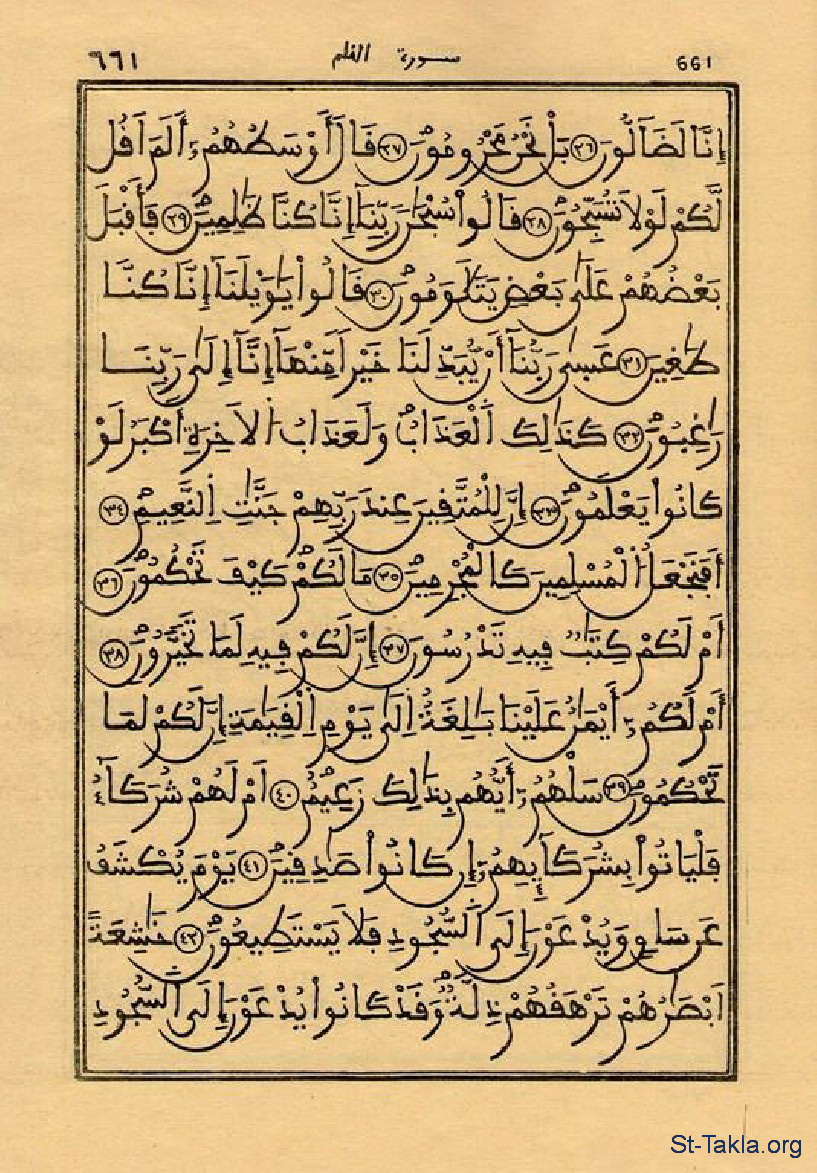 ٦٦١ سورة القلم 661
إِنَّا لَضَآلُّونَ ٢٦ بَلْ نَحْنُ مَحْرُومُونَ ٢٧ قَالَ أَوْسَطُهُمُۥٓ أَلَمَ اَقُل
لَّكُمْ لَوْلَا تُسَبِّحُونَ ٢٨ قَالُواْ سُبْحَٰنَ رَبِّنَآ إِنَّا كُنَّا ظَٰلِمِينَ ٢٩ فَأَقْبَلَ
بَعْضُهُمْ عَلَىٰ بَعْضٖ يَتَلَٰوَمُونَ ٣٠ قَالُواْ يَٰوَيْلَنَآ إِنَّا كُنَّا
طَٰغِينَ ٣١ عَسىٰ رَبُّنَآ أَنْ يُّبَدِّلَنَا خَيْراٗ مِّنْهَآ إِنَّآ إِلَىٰ رَبِّنَا
رَٰغِبُونَ ٣٢ كَذَٰلِكَ اَ۬لْعَذَابُ وَلَعَذَابُ اُ۬لَاخِرَةِ أَكْبَرُ لَوْ
كَانُواْ يَعْلَمُونَ ٣٣ إِنَّ لِلْمُتَّقِينَ عِندَ رَبِّهِمْ جَنَّٰتِ اِ۬لنَّعِيمِ ٣٤
أَفَنَجْعَلُ اُ۬لْمُسْلِمِينَ كَالْمُجْرِمِينَ ٣٥ مَا لَكُمْ كَيْفَ تَحْكُمُونَ ٣٦
أَمْ لَكُمْ كِتَٰبٞ فِيهِ تَدْرُسُونَ ٣٧ إِنَّ لَكُمْ فِيهِ لَمَا تَخَيَّرُونَ ٣٨
أَمْ لَكُمُۥٓ أَيْمَٰنٌ عَلَيْنَا بَٰلِغَةٌ اِلَىٰ يَوْمِ اِ۬لْقِيَٰمَةِ إِنَّ لَكُمْ لَمَا
تَحْكُمُونَ ٣٩ سَلْهُمُۥٓ أَيُّهُم بِذَٰلِكَ زَعِيمٌ ٤٠ اَمْ لَهُمْ شُرَكَآءُ
فَلْيَاتُواْ بِشُرَكَآئِهِمُۥٓ إِن كَانُواْ صَٰدِقِينَ ٤١ يَوْمَ يُكْشَفُ
عَن سَاقٖ وَيُدْعَوْنَ إِلَى اَ۬لسُّجُودِ فَلَا يَسْتَطِيعُونَ ٤٢ خَٰشِعَةً
اَبْصَٰرُهُمْ تَرْهَقُهُمْ ذِلَّةٞ وَقَدْ كَانُواْ يُدْعَوْنَ إِلَى اَ۬لسُّجُودِ
St-Takla.org